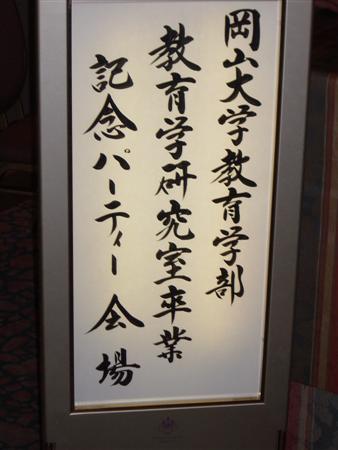 岡山大学教育学部
教育学研究室卒業
記念パーティー会場